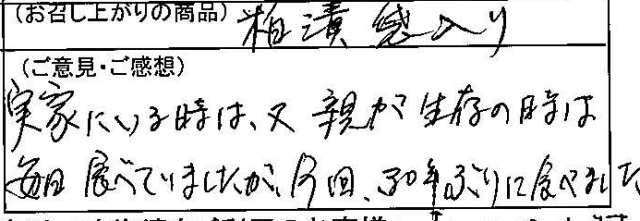 (お召し上がりの商品) 粕漬 詰入り
(ご意見・ご感想)
実家にいる時は、又親が生存の時は
毎日食べていましたが、今回、30年ぶりに食べました